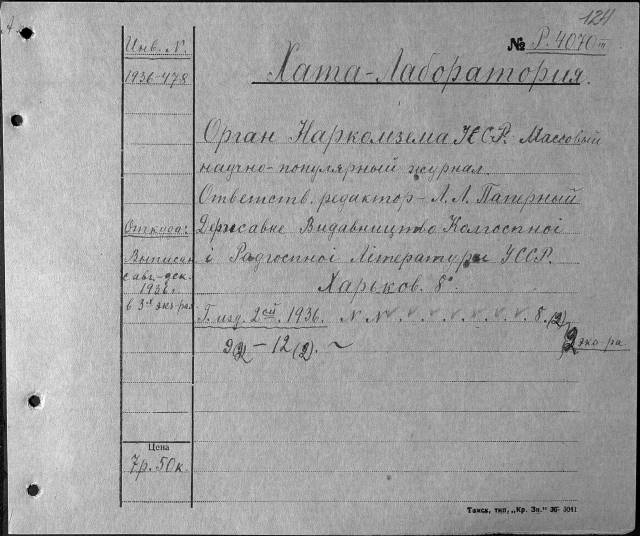 124
№ Р. 4070 III
Инв. N.
1936-478
Хата-Лаборатория.
Орган Наркомзема УССР. Массовый
научно-популярный журнал.
Ответств. редактор - Л. Л. Паперный
Державне Видавництво Колгоспної
і Радгоспної Літератури УССР.
Харьков. 8°.
Откуда:
Выписан
с авг.-дек.
1936 г.
в 3х экз-рах
Г. изд. 2ой 1936. N N v. v. v. v. v. v. 8.(2),
9(2) - 12(2). ~ 2 экз-ра
Цена
7р. 50к.
Тамск, тип. „Кр. Зн." 36- 5041